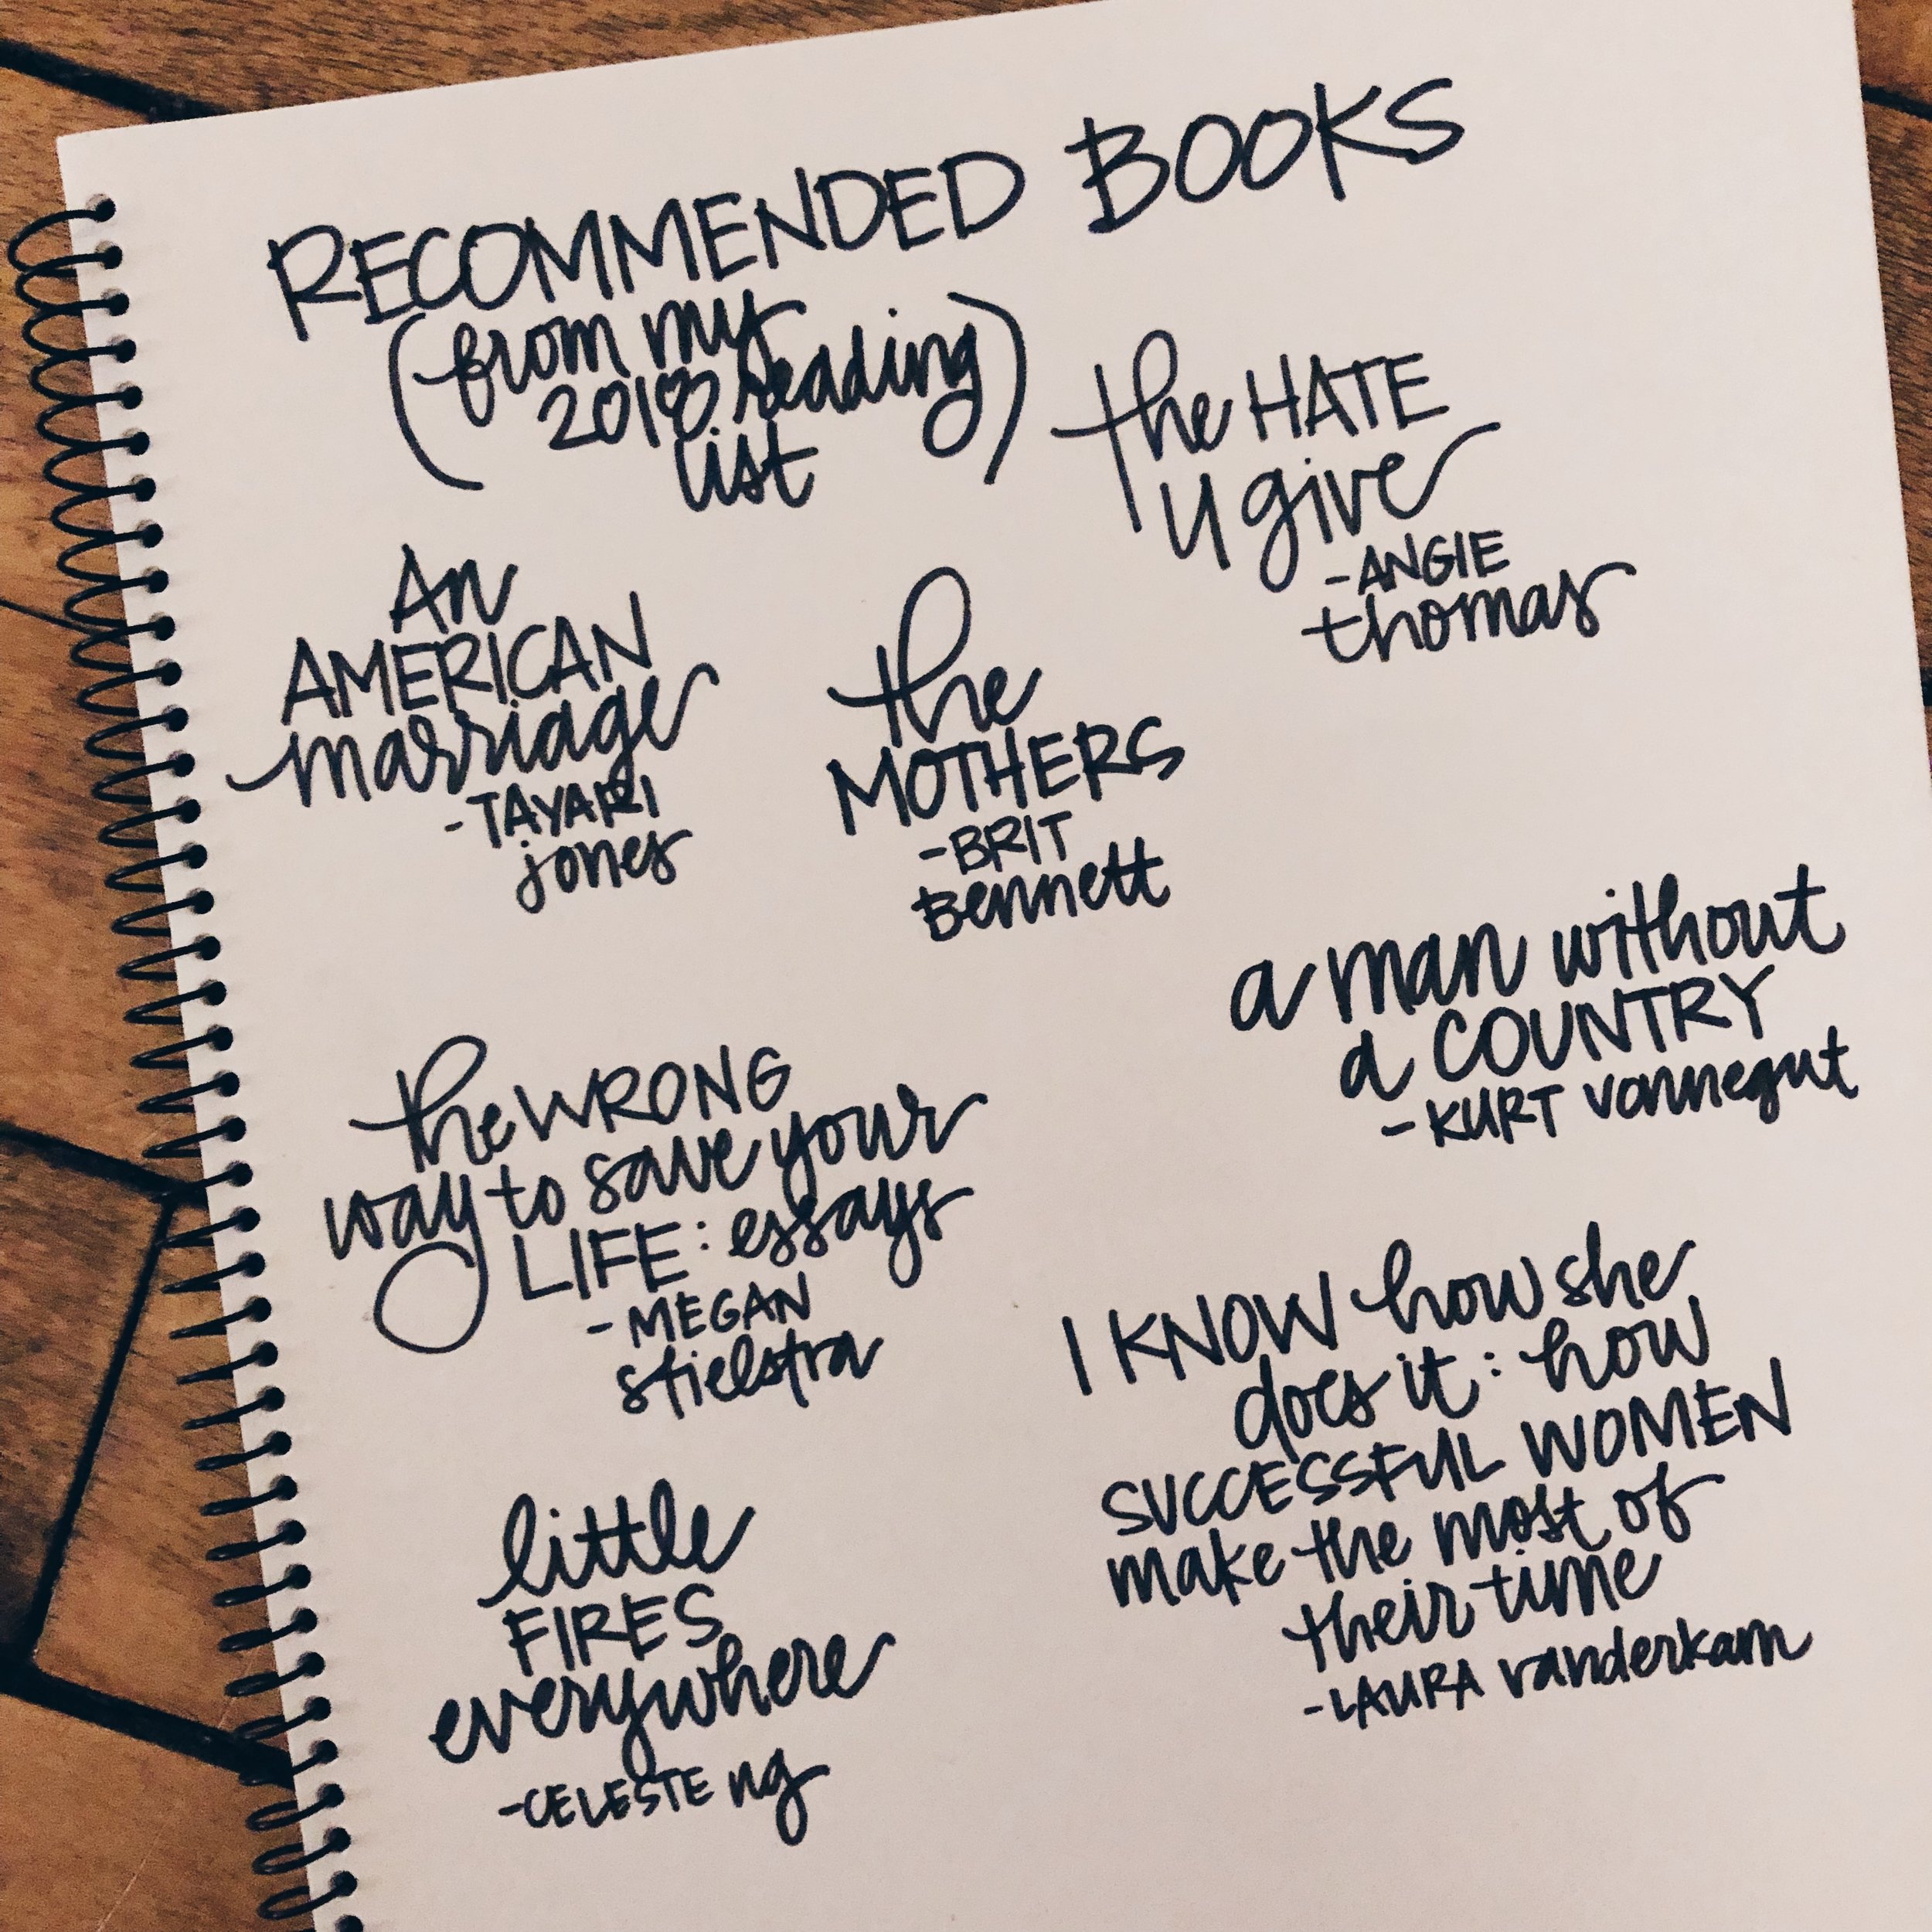 RECOMMENDED BOOKS
(from my
2018 reading)
list
the HATE
u give
-ANGIE
thomas
An
AMERICAN
marriage
-TAYARI
jones
the
MOTHERS
-BRIT
Bennett
a man without
a COUNTRY
-KURT vonnegut
the WRONG
way to save your
LIFE: essays
-MEGAN
stielstra
I KNOW how she
does it: how
SUCCESSFUL WOMEN
make the most of
their time
-LAURA vanderkam
little
FIRES
everywhere
-CELESTE ng